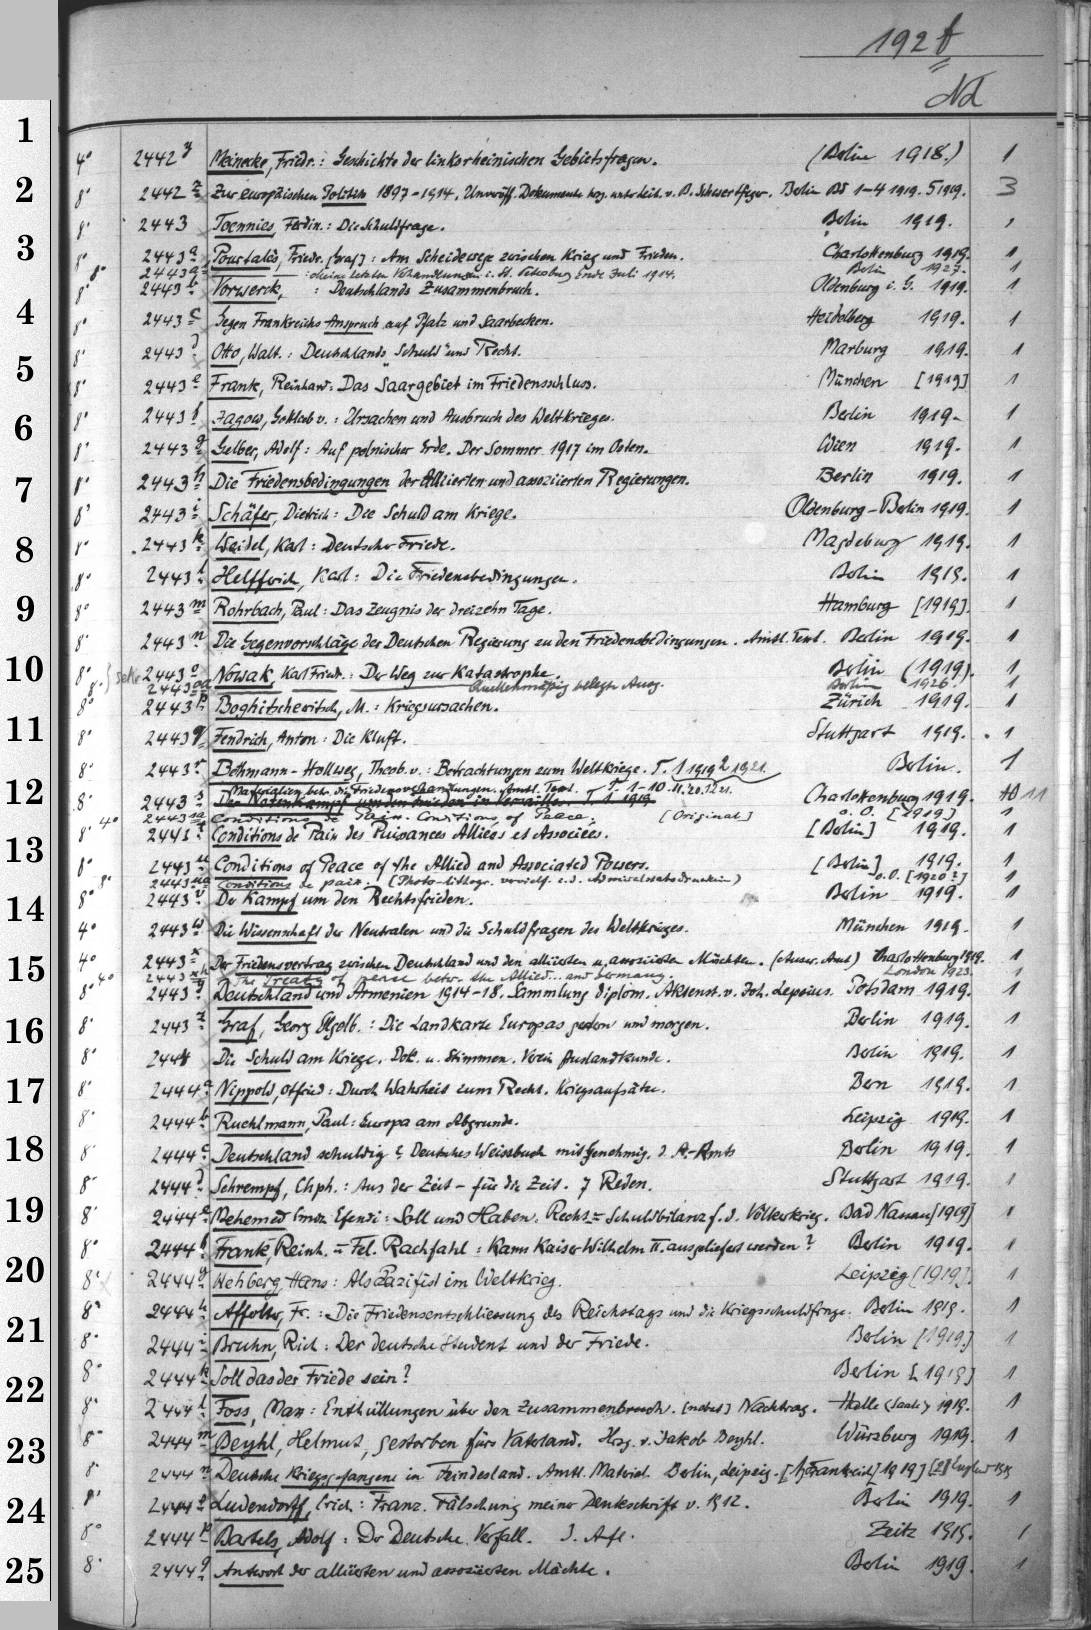 192 f
Nd
1
4° 2442 y Meinecke, Friedr.: Geschichte der linksrheinischen Gebietsfragen. (Berlin 1918.) 1
2
8° 2442 z Zur europäischen Politik 1897-1914. Unveröff. Dokumente hrg. unter Leit. v. B. Schwertfeger. Berlin Bd 1-4 1919. 5 1919. 3
8° 2443 Toennies, Ferdin.: Die Schuldfrage. Berlin 1919. 1
3
8° 2443 a Pourtalès, Friedr. [Graf]: Am Scheidewege zwischen Krieg und Frieden. Charlottenburg 1919. 1
8° 2443 : Meine letzten Verhandlungen i. St. Petersburg Ende Juli 1914. Berlin 1927. 1
8° 2443 b Vorwerck, : Deutschlands Zusammenbruch. Oldenburg i. G. 1919. 1
4
8° 2443 c Gegen Frankreichs Anspruch auf Pfalz und Saarbecken. Heidelberg 1919. 1
8° 2443 d Otto, Walt.: Deutschlands Schuld und Recht. Marburg 1919. 1
5
8° 2443 e Frank, Reinhard: Das Saargebiet im Friedensschluss. München [1919] 1
6
8° 2443 f Jagow, Gottlieb v.: Ursachen und Ausbruch des Weltkrieges. Berlin 1919. 1
8° 2443 g Gelber, Adolf: Auf polnischer Erde. Der Sommer 1917 im Osten. Wien 1919. 1
7
8° 2443 h Die Friedensbedingungen der Alliierten und assoziierten Regierungen. Berlin 1919. 1
8° 2443 i Schäfer, Dietrich: Die Schuld am Kriege. Oldenburg-Berlin 1919. 1
8
8° 2443 k Weidel, Karl: Deutscher Friede. Magdeburg 1919. 1
8° 2443 l Helfferich, Karl: Die Friedensbedingungen. Berlin 1919. 1
9
8° 2443 m Rohrbach, Paul: Das Zeugnis der dreizehn Tage. Hamburg [1919]. 1
8° 2443 n Die Gegenvorschläge der Deutschen Regierung zu den Friedensbedingungen. Amtl. Text. Berlin 1919. 1
10
8° 2443 o Nowak, Karl Friedr.: Der Weg zur Katastrophe. Berlin (1919). 1
8° 2443 oa Quellenmäßig belegte Ausg. Berlin 1926. 1
8° 2443 p Boghitschewitsch, M.: Kriegsursachen. Zürich 1919. 1
11
8° 2443 q Fendrich, Anton: Die Kluft. Stuttgart 1919. 1
8° 2443 r Bethmann-Hollweg, Theob. v.: Betrachtungen zum Weltkriege. T. 1 1919 2 1921. Berlin. 1
12
Materialien betr. die Friedensverhandlungen. Amtl. Text. T. 1-10. 11. 20. 12 21.
8° 2443 s Der Notenkampf um den Frieden in Versailles T. 1 1919 Charlottenburg 1919. 10 11
4° 2443 sa Conditions de Paix. Conditions of Peace. [Original] o. O. [1919] 1
8° 2443 t Conditions de Paix des Puissances Alliées et Associées. [Berlin] 1919. 1
13
8° 2443 u Conditions of Peace of the Allied and Associated Powers. [Berlin] 1919. 1
8° 2443 ua Conditions de paix. (Photo-lithogr. vervielf. i. d. Admiralstabsdruckerei) o.O. [1920?] 1
8° 2443 v Der Kampf um den Rechtsfrieden. Berlin 1919. 1
14
4° 2443 w Die Wissenschaft der Neutralen und die Schuldfragen des Weltkrieges. München 1919. 1
15
4° 2443 x Der Friedensvertrag zwischen Deutschland und den alliierten u. assoziierten Mächten. (Ausw. Amt) Charlottenburg 1919. 1
4° 2443 The Treaty of peace betw. the Allied.. and Germany. London 1923. 1
8° 2443 y Deutschland und Armenien 1914-18. Sammlung diplom. Aktenst. v. Joh. Lepsius. Potsdam 1919. 1
16
8° 2443 z Graf, Georg Engelb.: Die Landkarte Europas gestern und morgen. Berlin 1919. 1
8° 2444 Die Schuld am Kriege. Dok. u. Stimmen. Verein Auslandkunde. Berlin 1919. 1
17
8° 2444 a Nippold, Otfried: Durch Wahrheit zum Recht. Kriegsaufsätze. Bern 1919. 1
8° 2444 b Ruehlmann, Paul: Europa am Abgrunde. Leipzig 1919. 1
18
8° 2444 c Deutschland schuldig? Deutsches Weissbuch mit Genehmig. d. A.-Amts Berlin 1919. 1
8° 2444 d Schrempf, Chph.: Aus der Zeit - für die Zeit. 7 Reden. Stuttgart 1919. 1
19
8° 2444 e Mehemed Emin Efendi: Soll und Haben. Rechts- = Schuldbilanz f. d. Völkerkrieg. Bad Nassau [1919] 1
8° 2444 f Frank, Reinh. = Fel. Rachfahl: Kann Kaiser Wilhelm II. ausgeliefert werden? Berlin 1919. 1
20
8° 2444 g Wehberg, Hans: Als Pazifist im Weltkrieg. Leipzig [1919]. 1
8° 2444 h Affolter, Fr.: Die Friedensentschliessung des Reichstags und die Kriegsschuldfrage. Berlin 1919. 1
21
8° 2444 i Bruhn, Rich: Der deutsche Student und der Friede. Berlin [1919] 1
8° 2444 k Soll das der Friede sein? Berlin [1919] 1
22
8° 2444 l Foss, Max: Enthüllungen über den Zusammenbruch. [nebst] Nachtrag. Halle (Saale) 1919. 1
23
8° 2444 m Beyhl, Helmut, gestorben fürs Vaterland. Hrsg. v. Jakob Beyhl. Würzburg 1919. 1
8° 2444 n Deutsche Kriegsgefangene in Feindesland. Amtl. Material. Berlin, Leipzig. [1] Frankreich] 1919] [2] England 1919
24
8° 2444 o Ludendorff, Erich: Franz. Fälschung meiner Denkschrift v. 1912. Berlin 1919. 1
8° 2444 p Bartels, Adolf: Der Deutsche Verfall. 3. Afl. Zeitz 1919. 1
25
8° 2444 q Antwort der alliierten und assoziierten Mächte. Berlin 1919. 1